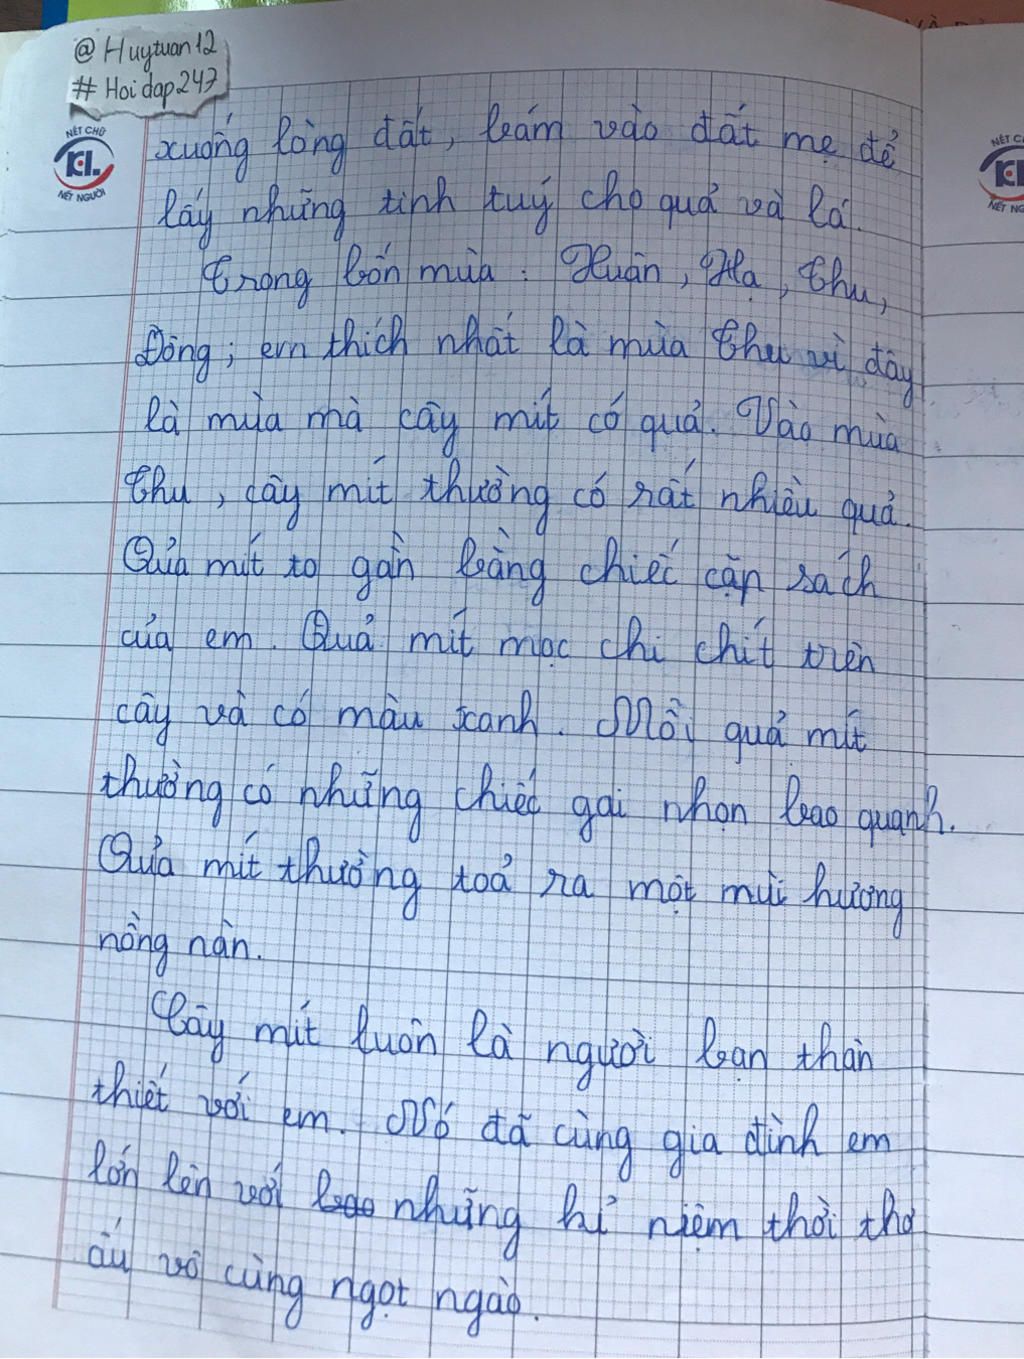 @ Huytuan12
# Hoidap247
NÉT CHỮ
KL.
NẾT NGƯỜI
NÉT C
NẾT NG
xuống lòng đất, bám vào đất mẹ để
lấy những tinh tuý cho quả và lá.
Trong bốn mùa: Xuân, Hạ, Thu,
Đông; em thích nhất là mùa Thu vì đây
là mùa mà cây mít có quả. Vào mùa
Thu, cây mít thường có rất nhiều quả.
Quả mít to gần bằng chiếc cặp sách
của em. Quả mít mọc chi chít trên
cây và có màu xanh. Mỗi quả mít
thường có những chiếc gai nhọn bao quanh.
Quả mít thường toả ra một mùi hương
nồng nàn.
Cây mít luôn là người bạn thân
thiết với em. Nó đã cùng gia đình em
lớn lên với bao những kỉ niệm thời thơ
ấu vô cùng ngọt ngào.